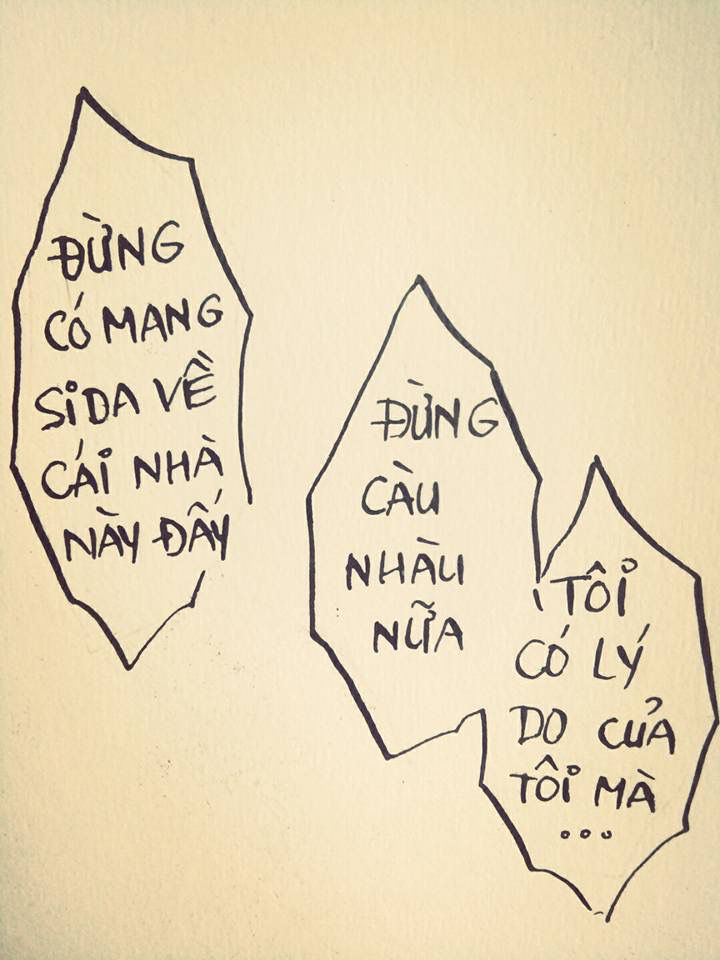 ĐỪNG
CÓ MANG
SiDA VỀ
CÁi NHÀ
NÀY ĐẤY
ĐỪNG
CÀU
NHÀU
NỮA
TÔi
CÓ LÝ
DO CỦA
TÔi MÀ
...